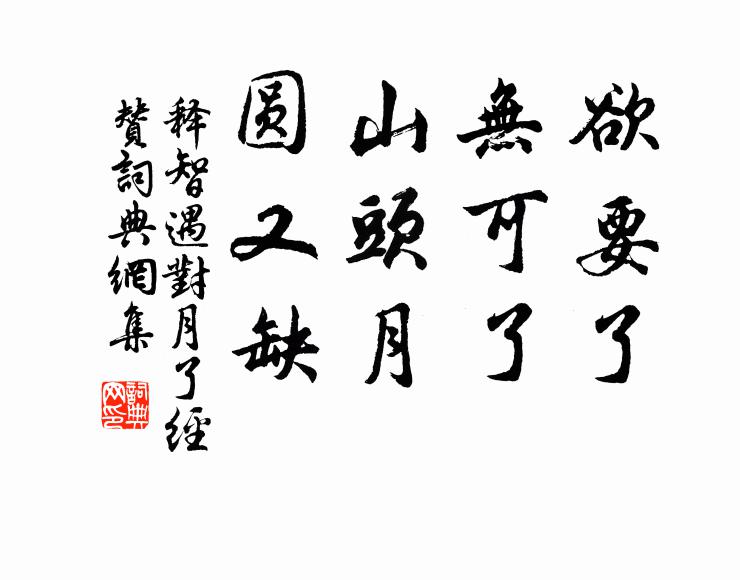 欲要了
無可了
山頭月
圆又缺
释智遇對月了經
賛詞典網集
詞典网印